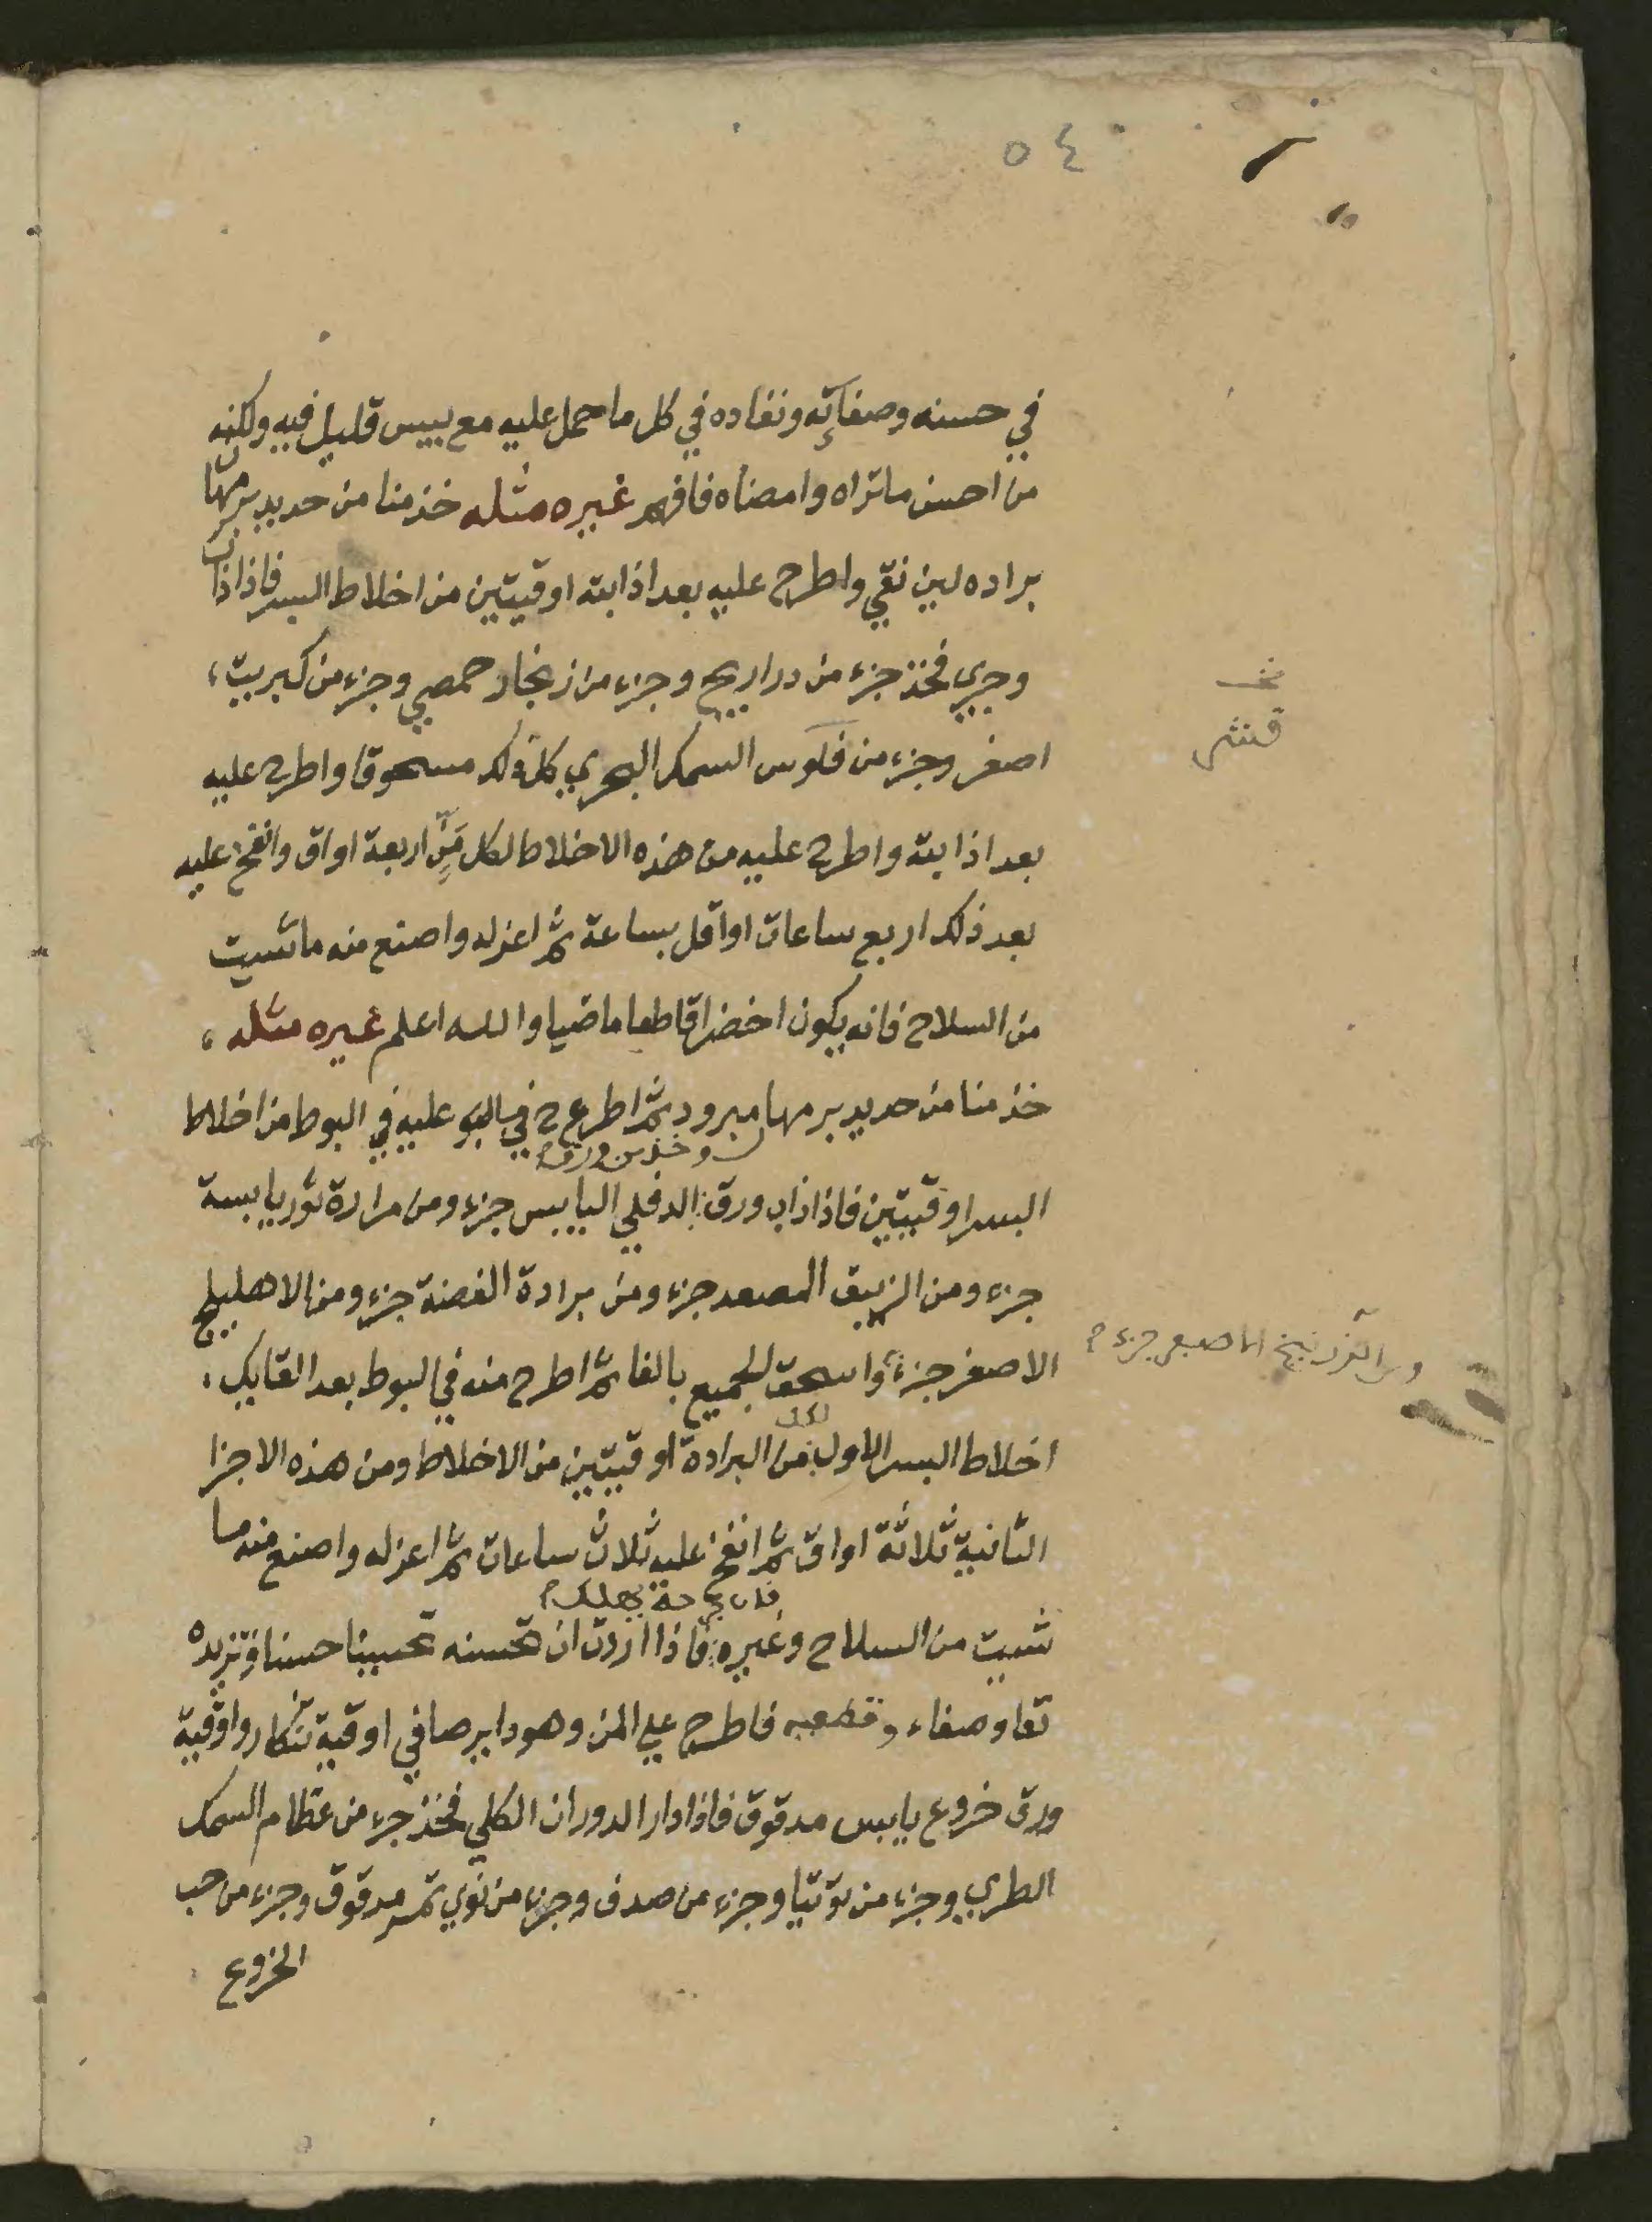 ٥٤
في حسنه وصفائه ونفاده في كل ما حمل عليه مع يبس قليل فيه ولكنه
من احسن ما تراه وامضاه فافهم غيره مثله خذ منا من حديد برمهان
براده لين نقي واطرح عليه بعد اذابته اوقيتين من اخلاط السر فاذا ذاب
وجري فخذ جزء من دراريح وجزء من زنجار حمصي وجزء من كبريت
اصفر وجزء من فلوس السمك البحري كل ذلك مسحوقا واطرح عليه
نخـ
قشر
بعد اذابته واطرح عليه من هذه الاخلاط لكل مَنٍّ اربعة اواق وانفخ عليه
بعد ذلك اربع ساعات او اقل بساعة ثم اعزله واصنع منه ما شيت
من السلاح فانه يكون اخضرا قاطعا ماضيا والله اعلم غيره مثله
خذ منا من حديد برمها مبرود ثم اطرح في البو عليه في البوط من اخلاط
وخذ من ورق
السر اوقيتين فاذا ذاب ورق الدفلي اليابس جزء ومن مرارة ثور يابسة
جزء ومن الزيبق المصعد جزء ومن برادة الفضة جزء ومن الاهليلج
الاصفر جزء واسحق الجميع بالغا ثم اطرح منه في البوط بعد القايك
ومن الزرنيخ الاصفر جزء
اخلاط السر الاول من البرادة اوقيتين من الاخلاط ومن هذه الاجزا
لكل
الثانية ثلاثة اواق ثم انفخ عليه ثلاث ساعات ثم اعزله واصنع منه ما
شيت من السلاح وغيره فاذا اردت ان تحسنه تحسينا حسنا وتزيده
نقا وصفاء وقطعه فاطرح علي المن وهو داير صافي اوقية تنكار واوقية
ورق خروع يابس مدقوق فاذا دار الدوران الكلي فخذ جزء من عظام السمك
الطري وجزء من توتيا وجزء من صدف وجزء من نوي تمر مدقوق وجزء من حب
الخروع